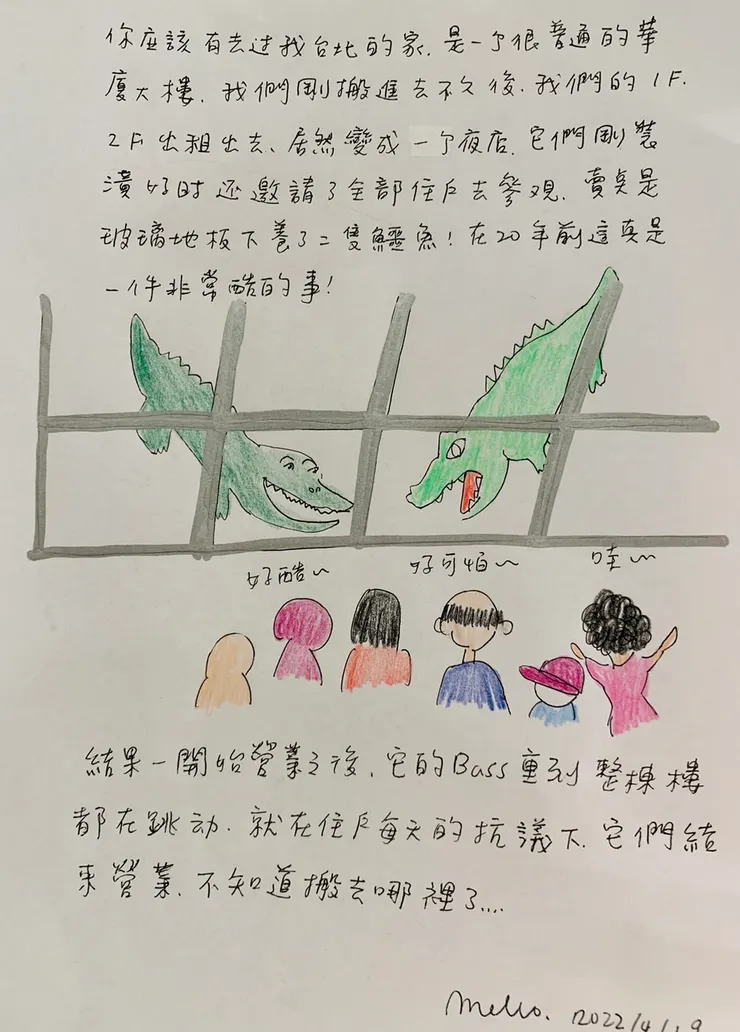 你应該有去过我台北的家. 是一个很普通的華
廈大樓. 我們剛搬進去不久後. 我們的 1F.
2F 出租出去、居然變成一个夜店. 它們剛裝
潢好时还邀請了全部住戶去參观. 賣桌是
玻璃地板下養了二隻鱷魚! 在20年前這真是
一件非常酷的事!
好酷~
好可怕~
哇~
結果一開始營業之後、它的Bass重到整棟樓
都在跳动. 就在住戶每天的抗議下. 它們結
束營業. 不知道搬去哪裡了....
Mello. 2022/4/19